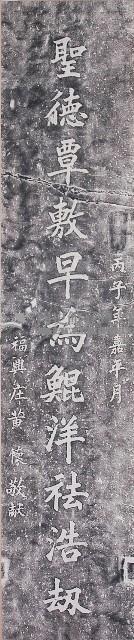 丙子年嘉平月
聖德覃敷早為鯤洋祛浩劫
福興庄黄懷敬献